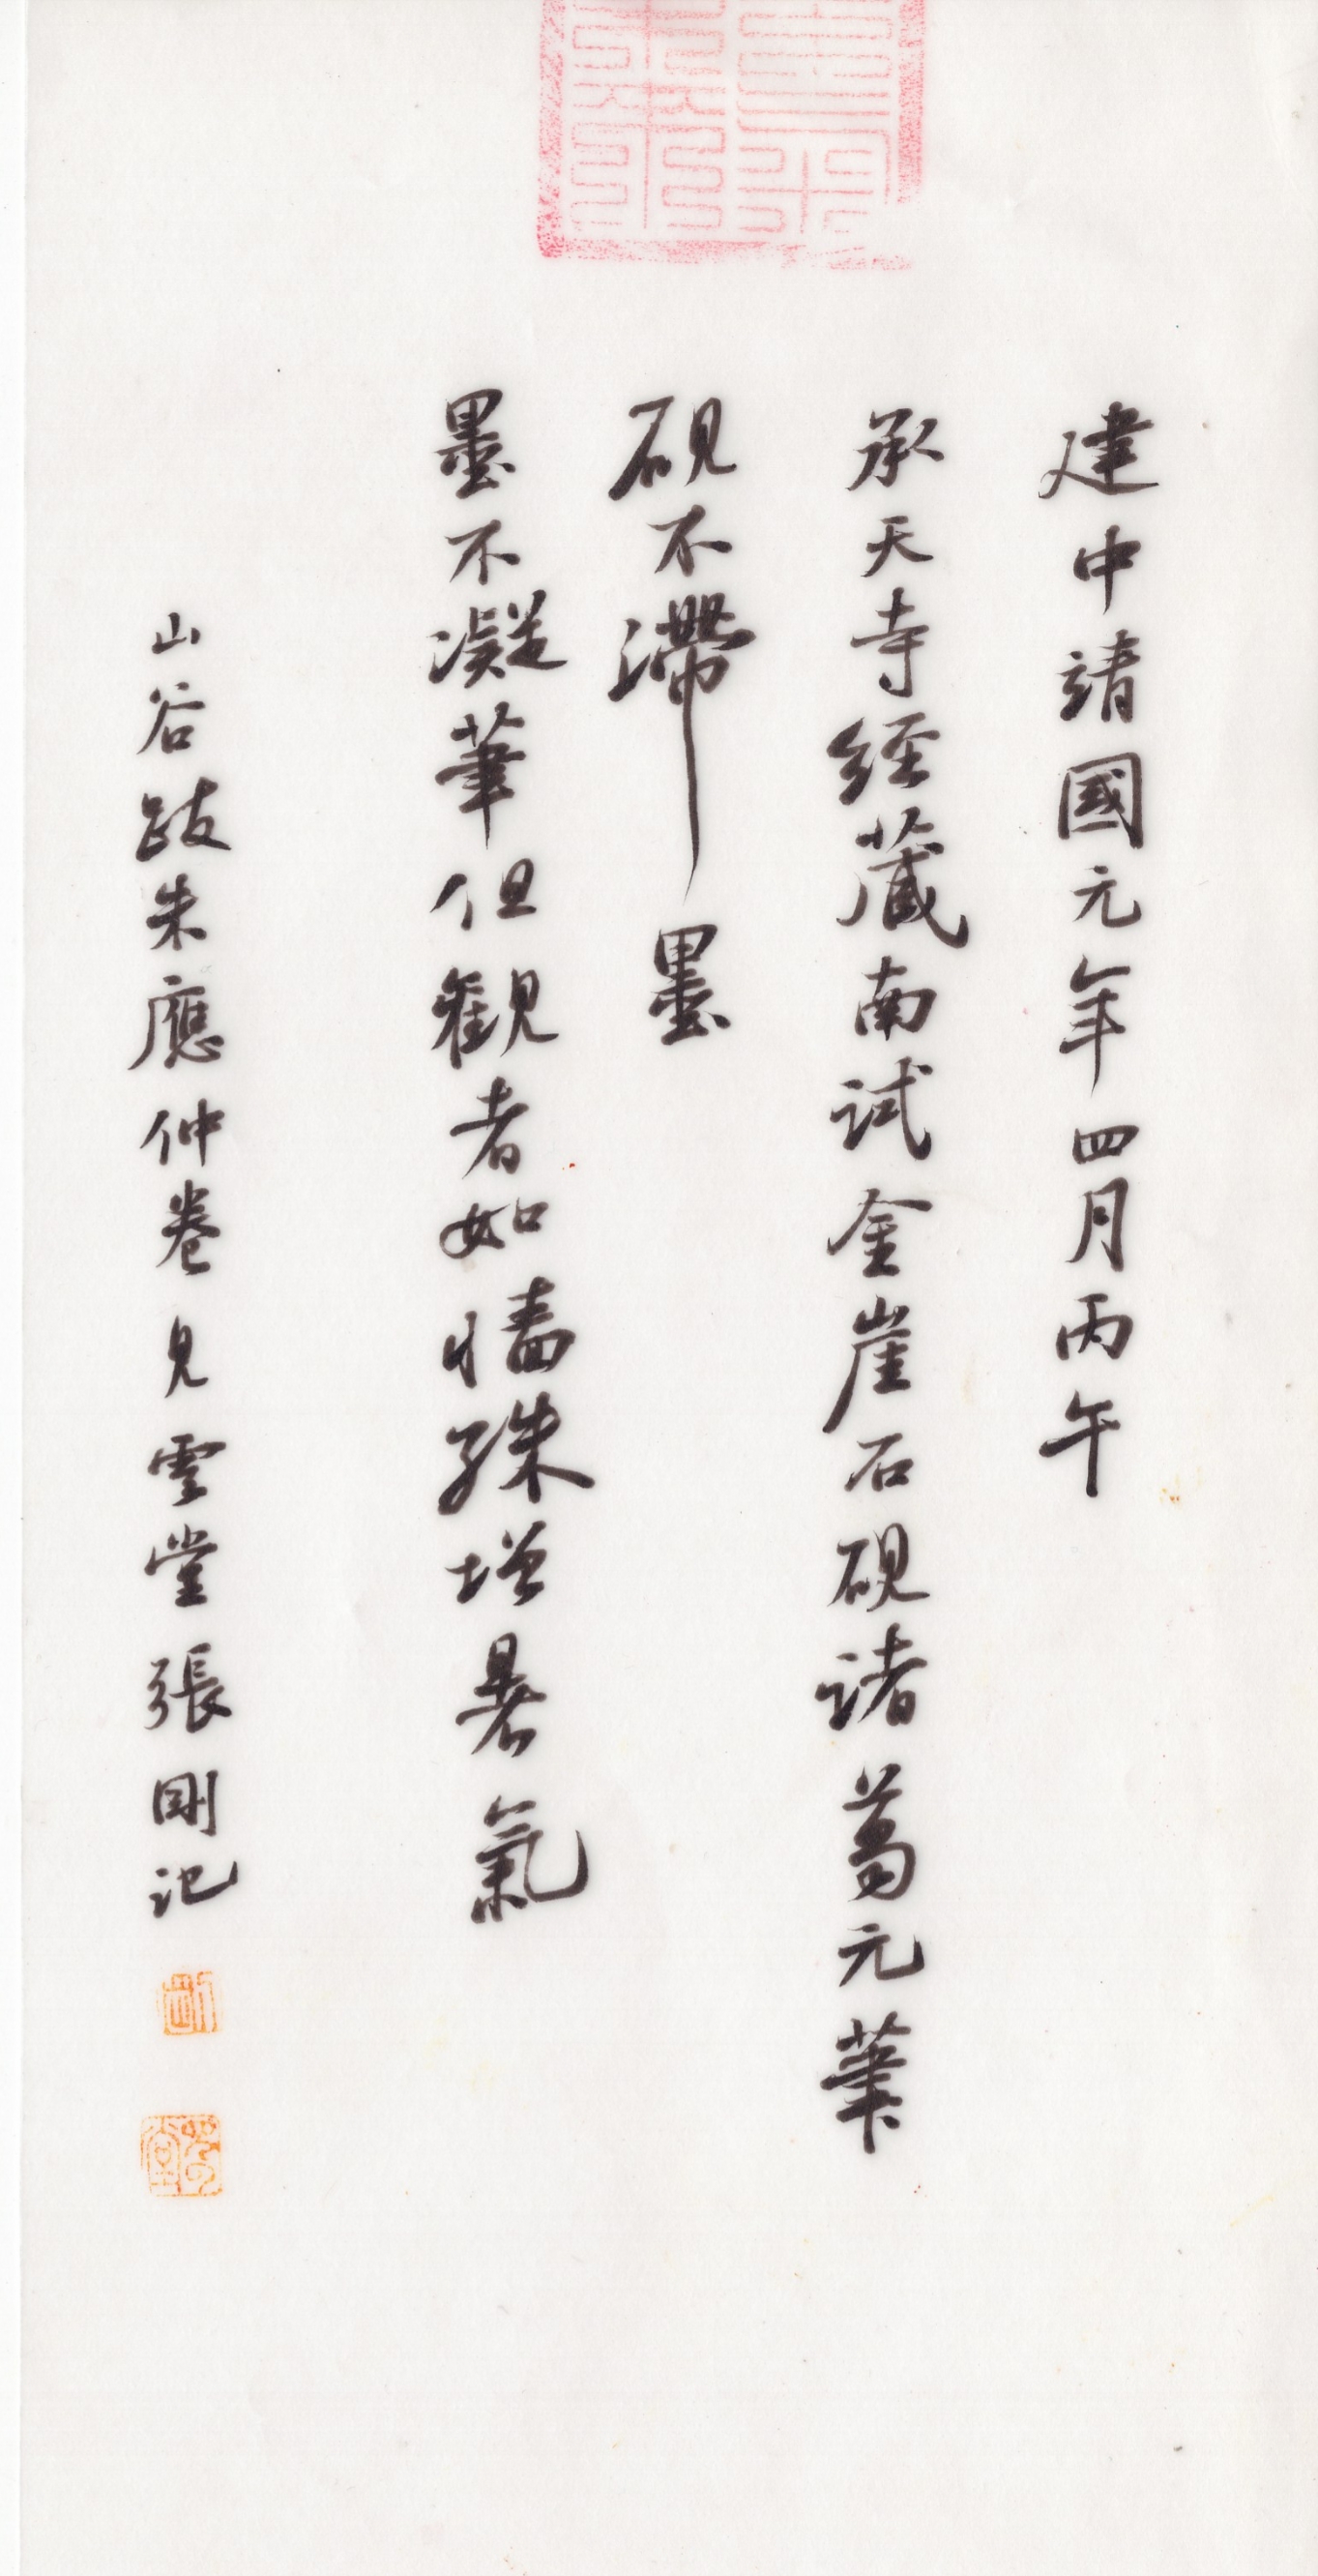 建中靖國元年四月丙午
承天寺經藏南試金崖石硯諸葛元筆
硯不滯墨
墨不凝筆但觀者如墻殊增暑氣
山谷跋朱應仲卷見雲堂張剛記